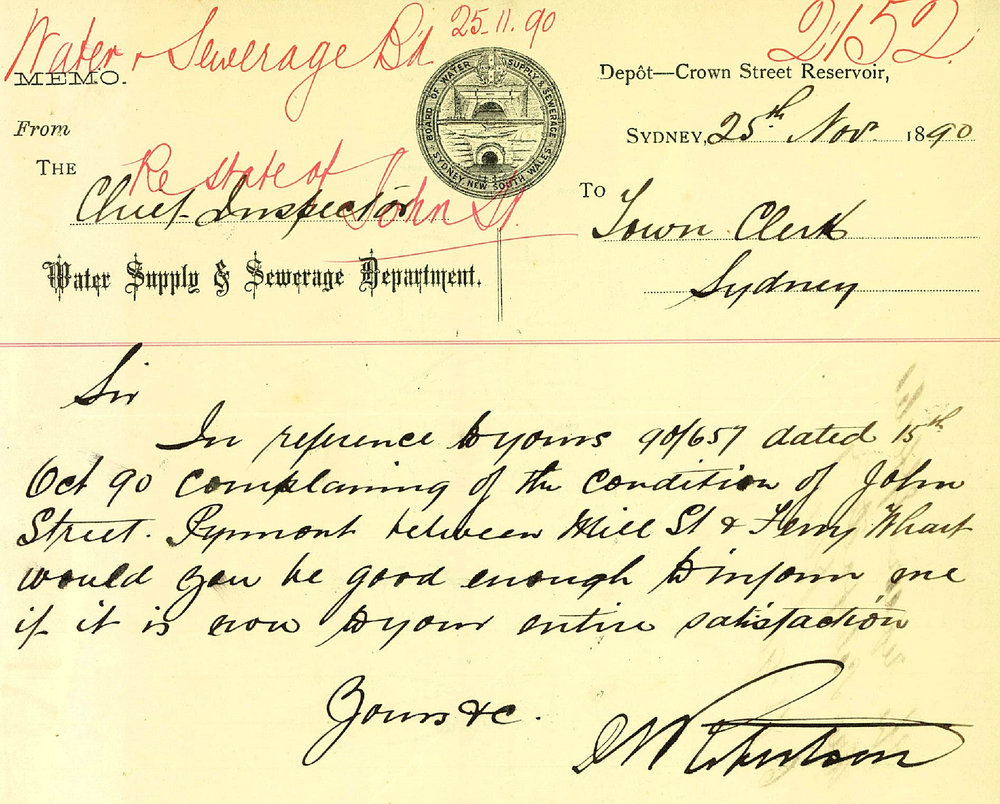 Water & Sewerage Bd 25-11-90
2152
MEMO.
From
THE
Re state of John St.
Chief Inspector
Water Supply & Sewerage Department.
BOARD OF WATER SUPPLY & SEWERAGE
SYDNEY, NEW SOUTH WALES
Depôt—Crown Street Reservoir,
SYDNEY, 25th Nov. 1890
To
Town Clerk
Sydney
Sir
In reference to yours 90/657 dated 15th
Oct 90 complaining of the condition of John
Street. Pyrmont between Mill St & Ferry Wharf
would you be good enough to inform me
if it is now to your entire satisfaction
Yours &c.
Robertson